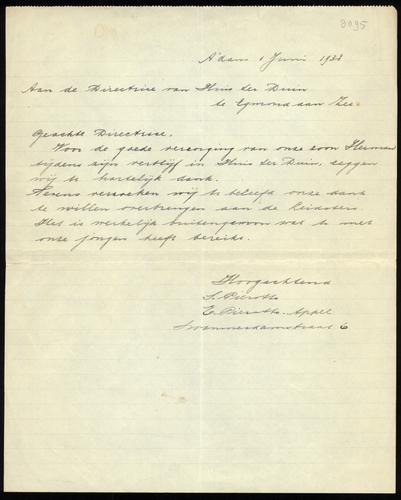 8095
A'dam 1 Juni 1933
Aan de Directrice van Huis ter Duin
te Egmond aan Zee.
Geachte Directrice.
Voor de goede verzorging van onze zoon Herman
tijdens zijn verblijf in Huis ter Duin, zeggen
wij U hartelijk dank.
Tevens verzoeken wij U beleefd onze dank
te willen overbrengen aan de Leidsters.
Het is werkelijk buitengewoon wat U met
onze jongen heeft bereikt.
Hoogachtend
S. Pierot
E. Pierot-Appel
Swammerdamstraat 6